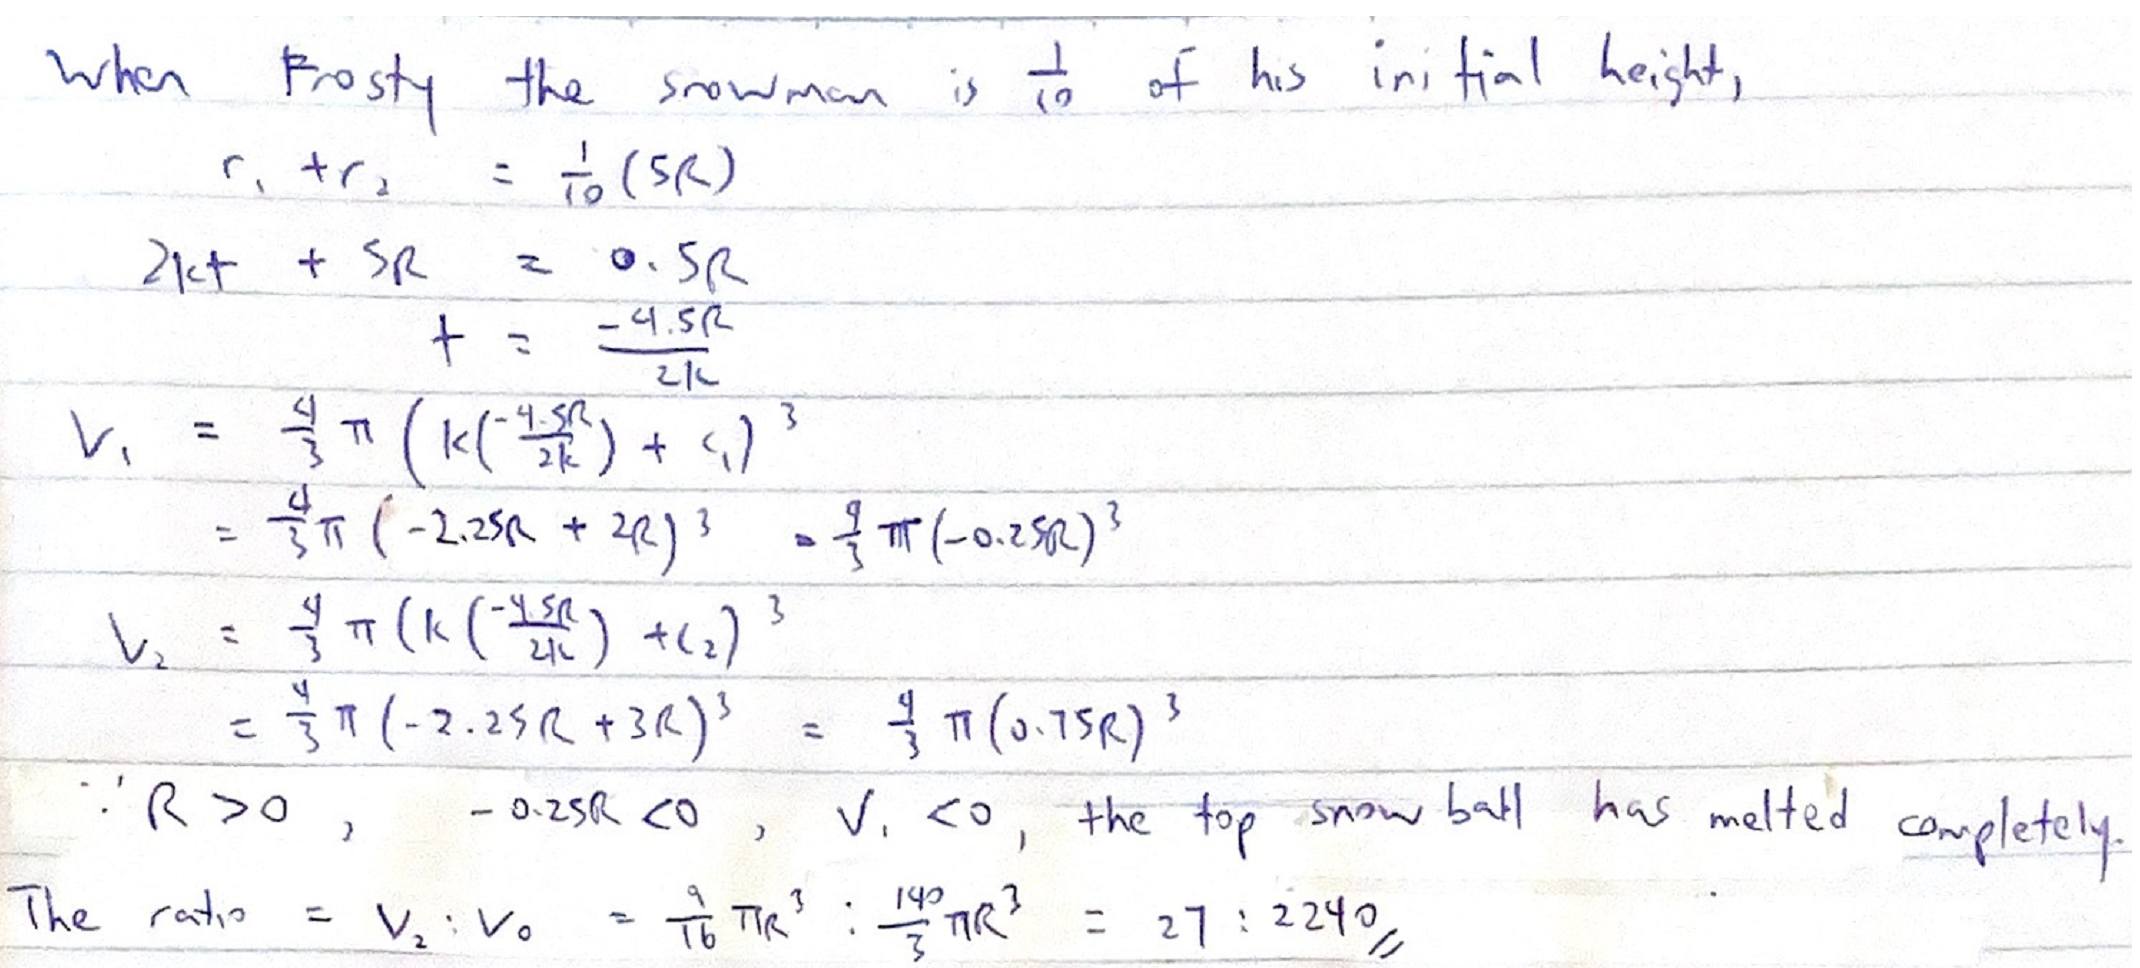 When Frosty the snowman is 1/10 of his initial height,
r₁ + r₂ = 1/10 (5R)
2kt + 5R = 0.5R
t = -4.5R/2k
V₁ = 4/3 π (k(-4.5R/2k) + c₁)³
= 4/3 π (-2.25R + 2R)³ = 4/3 π (-0.25R)³
V₂ = 4/3 π (k(-4.5R/2k) + c₂)³
= 4/3 π (-2.25R + 3R)³ = 4/3 π (0.75R)³
∵ R > 0, -0.25R < 0, V₁ < 0, the top snow ball has melted completely.
The ratio = V₂ : V₀ = 9/16 πR³ : 140/3 πR³ = 27 : 2240